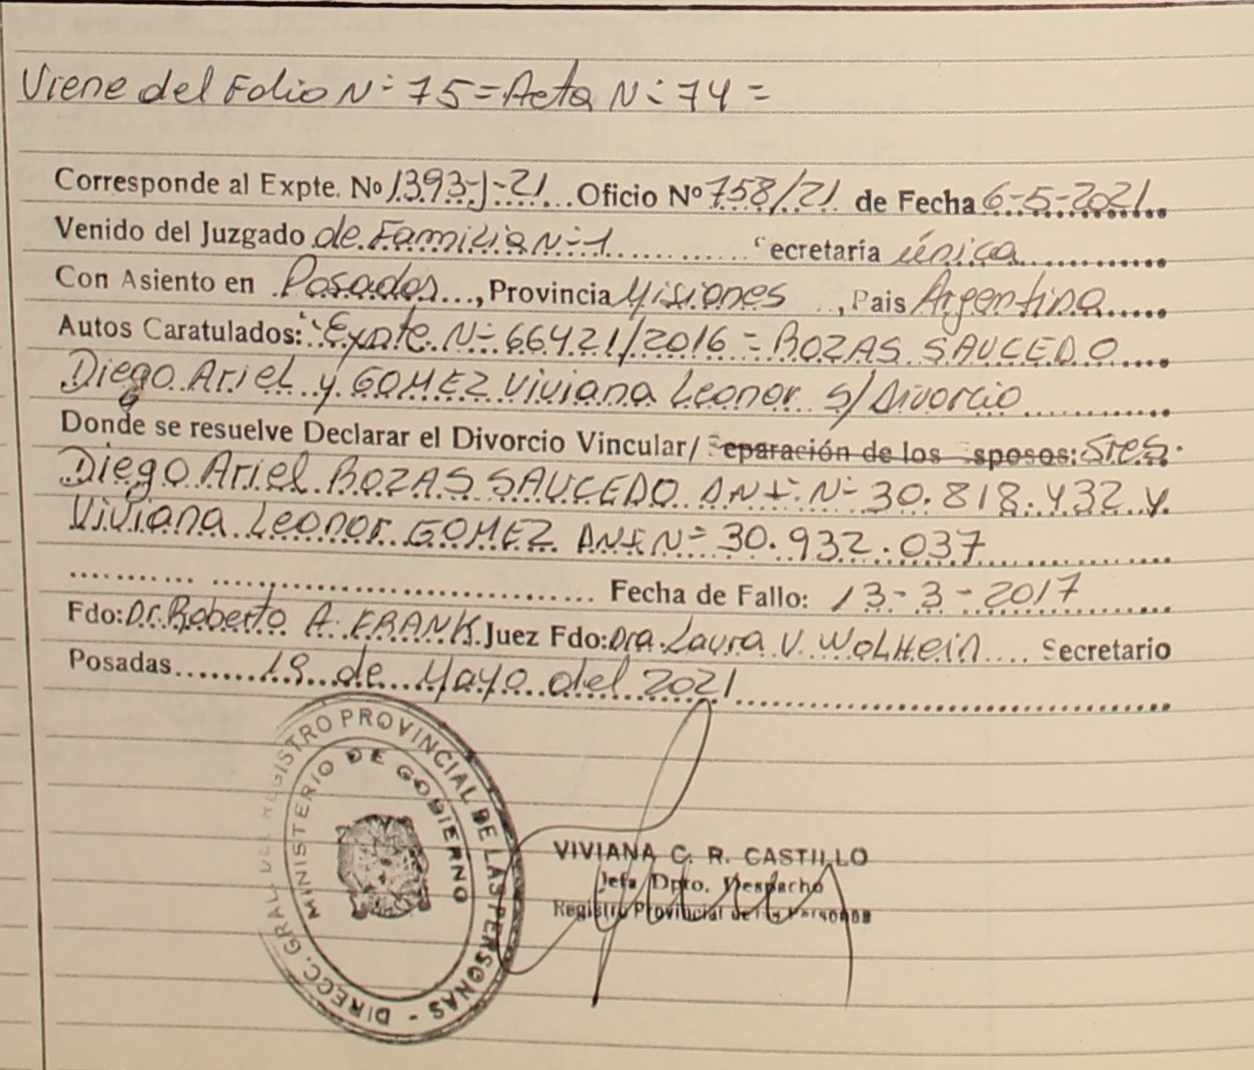 Viene del Folio N: 75 = Acta N: 74 =
Corresponde al Expte. Nº 1393-J-21 Oficio Nº 758/21 de Fecha 6-5-2021
Venido del Juzgado de Familia N: 1 Secretaría única
Con Asiento en Posadas, Provincia Misiones, Pais Argentina
Autos Caratulados: "Expte. N: 66421/2016 = BOZAS SAUCEDO
Diego Ariel y GOMEZ Viviana Leonor s/ Divorcio
Donde se resuelve Declarar el Divorcio Vincular/ Separación de los Esposos: Sres.
Diego Ariel BOZAS SAUCEDO DNI. N: 30.818.432 y
Viviana Leonor GOMEZ DNI N: 30.932.037
Fecha de Fallo: 13-3-2017
Fdo: Dr. Roberto A. FRANK Juez Fdo: Dra. Laura V. WOLHein Secretario
Posadas 19 de Mayo del 2021
DIRECC. GRAL. DEL REGISTRO PROVINCIAL DE LAS PERSONAS -
MINISTERIO DE GOBIERNO
VIVIANA C. R. CASTILLO
Jefa Dpto. Despacho
Registro Provincial de las Personas